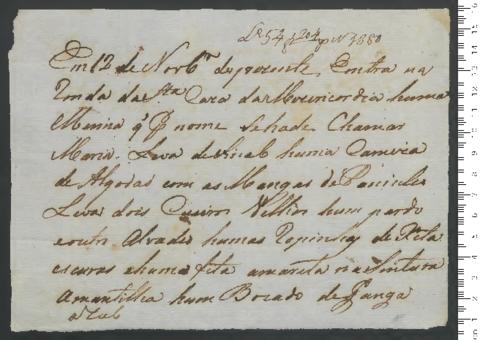 Lº 54 f 204 p Nº 3880
Em 12 de Novbrº do prezente, Entra na
Ronda da Sta Caza da Mizericordia huma
Menina q P nome Sehade Chamar
Maria. Leva de Sinal huma Camiza
de Algodaõ com as Mangas de
Leva dois Cueiros Velhos hum pardo
e outro Alvadio humas Ropinhas de Xila
escuras e huma fita amarela na Sintura
Amantilha hum Bocado de Ganga
azul